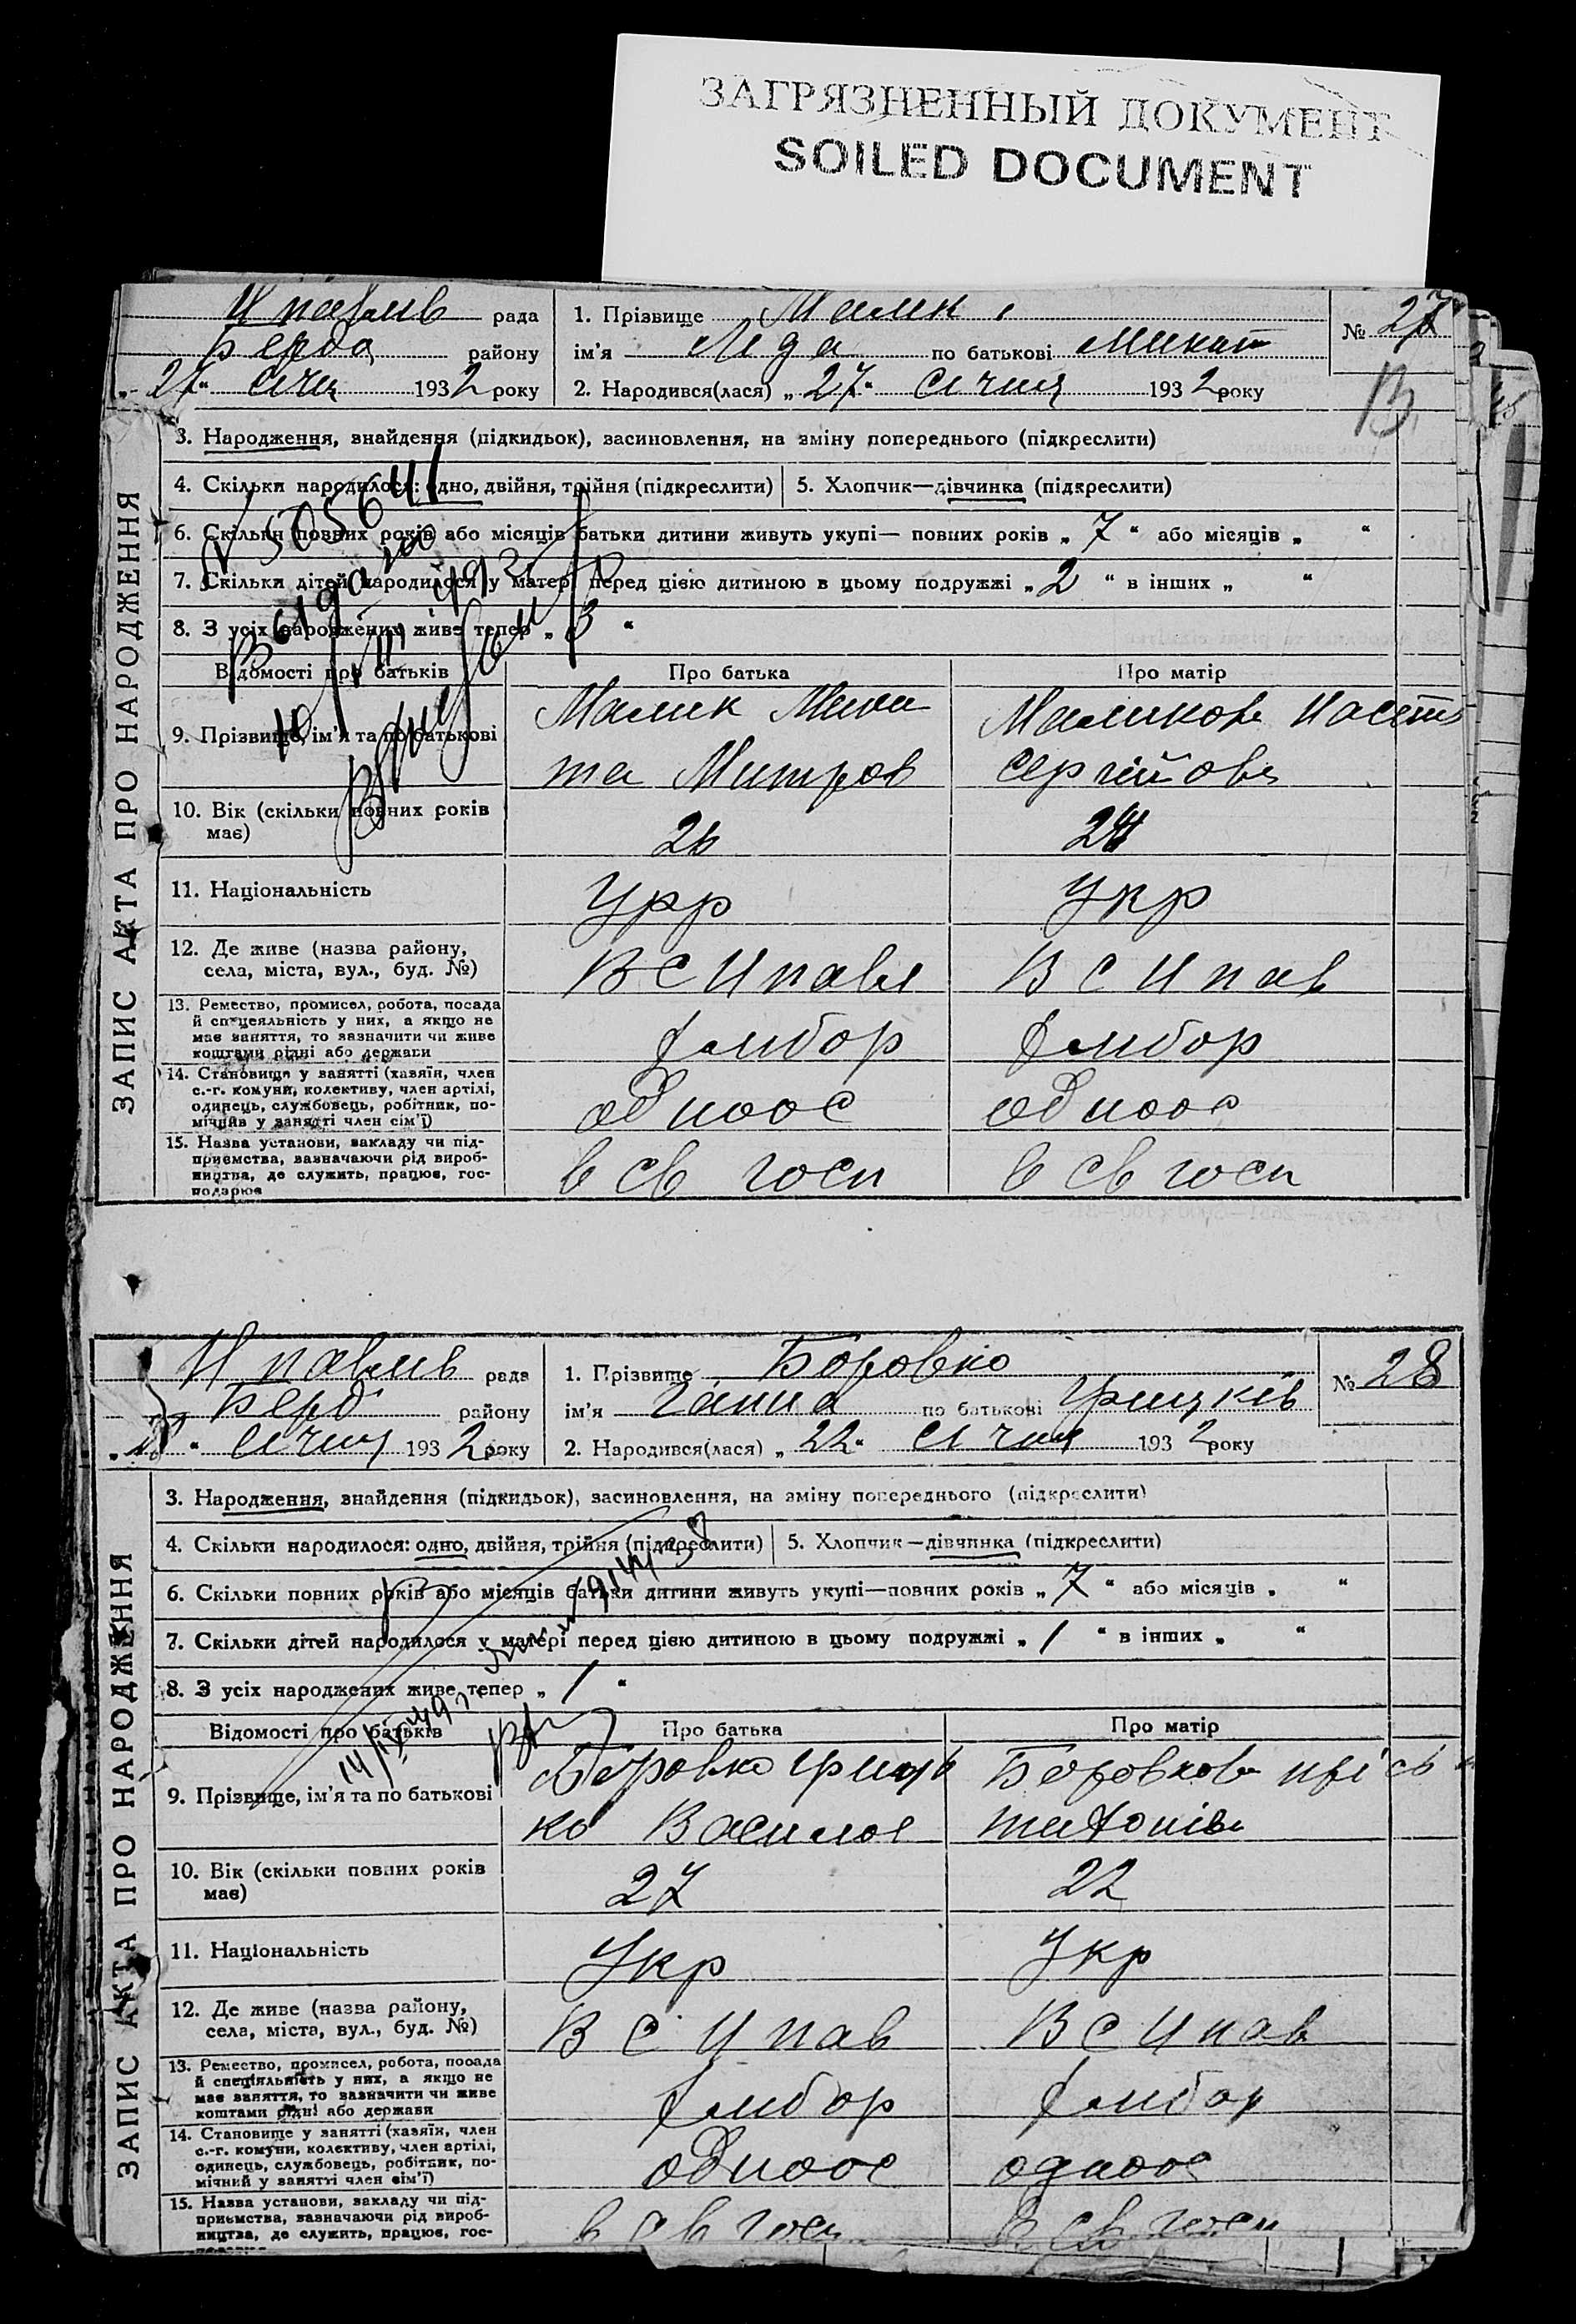 ЗАГРЯЗНЕННЫЙ ДОКУМЕНТ
SOILED DOCUMENT
рада
району
„27“ січн 1932 року
1. Прізвище Малик
ім'я Ліда по батькові Микит
2. Народився(лася) „27“ січня 1932 року
№ 27
13
ЗАПИС АКТА ПРО НАРОДЖЕННЯ
3. Народження, знайдення (підкидьок), засиновлення, на зміну попереднього (підкреслити)
4. Скільки народилося: одно, двійня, трійня (підкреслити)
5. Хлопчик—дівчинка (підкреслити)
6. Скільки повних років або місяців батьки дитини живуть укупі— повних років „7“ або місяців „ “
7. Скільки дітей народилося у матері перед цією дитиною в цьому подружжі „2“ в інших „ “
8. З усіх народжених живе тепер „3“
Відомості про батьків
Про батька
Про матір
9. Прізвище, ім'я та по батькові
Малик Мики
та Митров
Маликова Наст
Сергійова
10. Вік (скільки повних років
має)
26
24
11. Національність
Укр
Укр
12. Де живе (назва району,
села, міста, вул., буд. №)
В С И павл
В С И пав
13. Ремество, промисел, робота, посада
й спеціяльність у них, а якщо не
має заняття, то зазначити чи живе
коштами рідні або держави
хлибор
хлибор
14. Становище у занятті (хазяїн, член
с.-г. комуни, колективу, член артілі,
одинець, службовець, робітник, по-
мічний у занятті член сім'ї)
одноос
одноос
15. Назва установи, закладу чи під-
приємства, зазначаючи рід вироб-
ництва, де служить, працює, гос-
подарює
в св госп
в св госп
рада
Берд району
„28“ січня 1932 року
1. Прізвище Боровко
ім'я Ганна по батькові Грицків
2. Народився(лася) „22“ січня 1932 року
№ 28
ЗАПИС АКТА ПРО НАРОДЖЕННЯ
3. Народження, знайдення (підкидьок), засиновлення, на зміну попереднього (підкреслити)
4. Скільки народилося: одно, двійня, трійня (підкреслити)
5. Хлопчик—дівчинка (підкреслити)
6. Скільки повних років або місяців батьки дитини живуть укупі—повних років „7“ або місяців „ “
7. Скільки дітей народилося у матері перед цією дитиною в цьому подружжі „1“ в інших „ “
8. З усіх народжених живе тепер „1“
Відомості про батьків
Про батька
Про матір
9. Прізвище, ім'я та по батькові
Боровко Гриць
ко Василов
Боровкова
10. Вік (скільки повних років
має)
27
22
11. Національність
Укр
Укр
12. Де живе (назва району,
села, міста, вул., буд. №)
В С И пав
В С И пав
13. Ремество, промисел, робота, посада
й спеціяльність у них, а якщо не
має заняття, то зазначити чи живе
коштами рідні або держави
хлибор
хлибор
14. Становище у занятті (хазяїн, член
с.-г. комуни, колективу, член артілі,
одинець, службовець, робітник, по-
мічний у занятті член сім'ї)
одноос
одноос
15. Назва установи, закладу чи під-
приємства, зазначаючи рід вироб-
ництва, де служить, працює, гос-
в св госп
в св госп